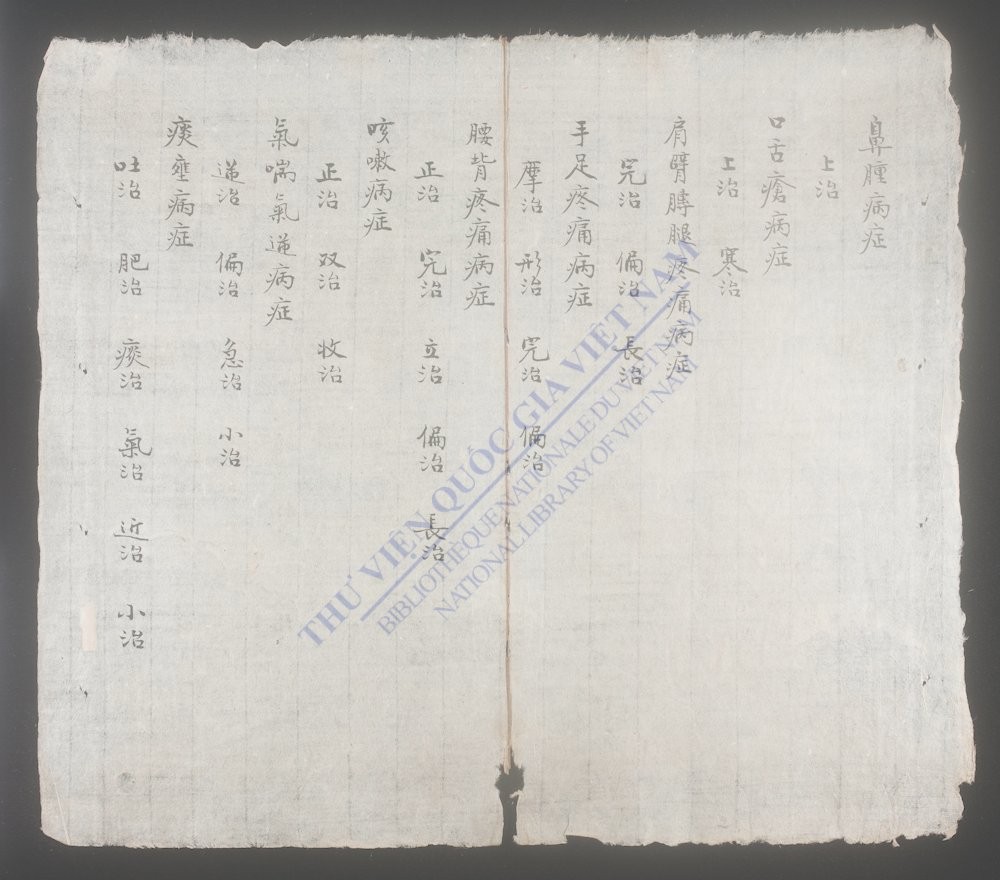 鼻腫病症
上治
口舌瘡病症
上治 寒治
肩臂膊腿疼痛病症
完治 偏治 長治
手足疼痛病症
摩治 形治 完治 偏治
腰背疼痛病症
正治 完治 立治 偏治 長治
咳嗽病症
正治 双治 收治
氣喘氣逆病症
逆治 偏治 急治 小治
痰壅病症
吐治 肥治 痰治 氣治 近治 小治
THƯ VIỆN QUỐC GIA VIỆT NAM
BIBLIOTHÈQUE NATIONALE DU VIETNAM
NATIONAL LIBRARY OF VIET NAM